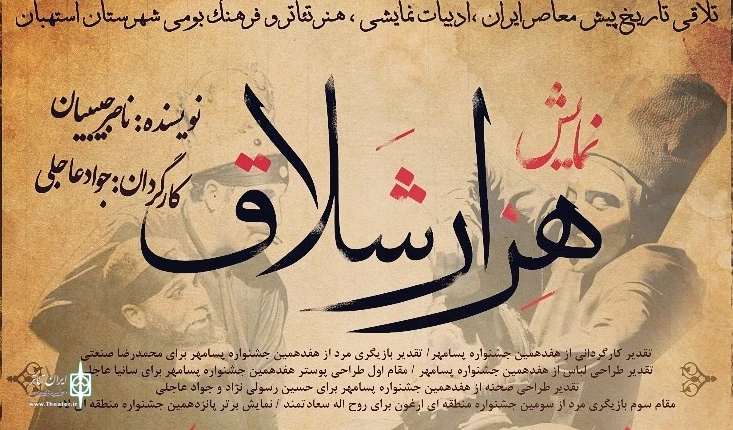 تلاقی تاریخ پیش معاصر ایران ، ادبیات نمایشی ، هنر تئاتر و فرهنگ بومی شهرستان استهبان
نمایش
هزار شلاق
نویسنده: ناصر حبیبیان
کارگردان: جواد عاجلی
تقدیر کارگردانی از هفدهمین جشنواره پسامهر/ تقدیر بازیگری مرد از هفدهمین جشنواره پسامهر برای محمدرضا صنعتی
تقدیر طراحی لباس از هفدهمین جشنواره پسامهر / مقام اول طراحی پوستر هفدهمین جشنواره پسامهر برای سانیا عاجلی
تقدیر طراحی صحنه از هفدهمین جشنواره پسامهر برای حسین رسولی نژاد و جواد عاجلی
مقام سوم بازیگری مرد از سومین جشنواره منطقه ای ارغون برای روح اله سعادتمند / نمایش برتر پانزدهمین جشنواره منطقه ا
ایران تئاتر
www.Theater.ir